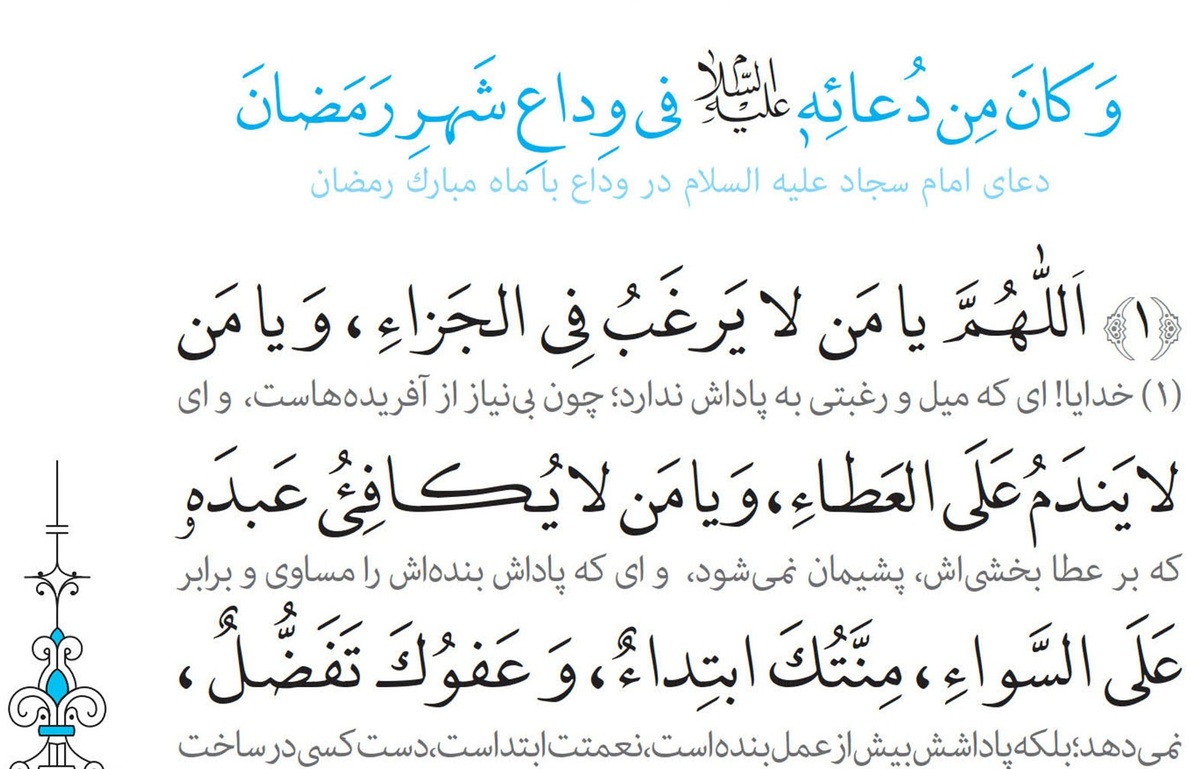 وَ كانَ مِن دُعائِهِ عليه السّلام فى وِداعِ شَهرِ رَمَضانَ
دعای امام سجاد علیه السلام در وداع با ماه مبارك رمضان
﴿١﴾ اَللّٰهُمَّ يا مَن لا يَرغَبُ فِى الجَزاءِ، وَ يا مَن
(۱) خدایا! ای که میل و رغبتی به پاداش ندارد؛ چون بی‌نیاز از آفریده‌هاست، و ای
لا يَندَمُ عَلَى العَطاءِ، وَ يا مَن لا يُكافِئُ عَبدَهو
که بر عطا بخشی‌اش، پشیمان نمی‌شود، و ای که پاداش بنده‌اش را مساوی و برابر
عَلَى السَّواءِ، مِنَّتُكَ ابتِداءٌ، وَ عَفوُكَ تَفَضُّلٌ،
نمی‌دهد؛ بلکه پاداشش بیش از عمل بنده است، نعمتت ابتداست، دست کسی در ساخت